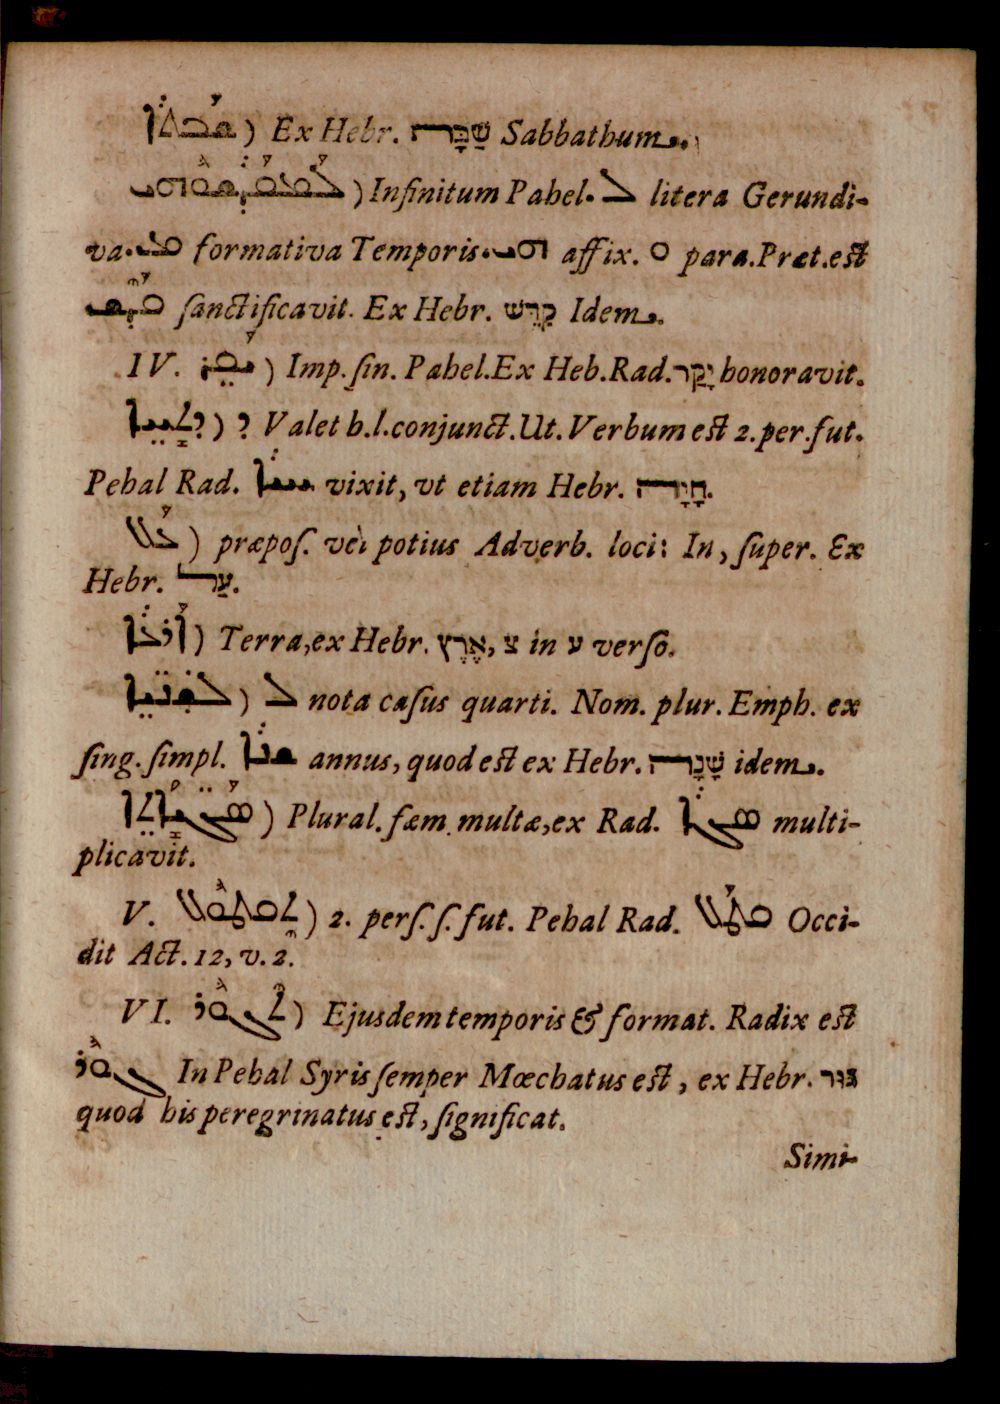 ܫܰܒܬ݂ܳܐ) Ex Hebr. שַׁבָּת Sabbathum.
ܠܰܡܩܰܕܳܫܘܬܗ) Infinitum Pahel. ܠ litera Gerundi-
va. formativa Temporis. affix. ܘ para. Præt. est
ܩܰܕܶܫ sanctificavit. Ex Hebr. קִדֵּשׁ Idem.
IV. ܝܰܩܰܪ) Imp. sin. Pahel. Ex Heb. Rad. יָקַר honoravit.
ܕܬܺܚܶܐ) ܕ Valet h. l. conjunct. Ut. Verbum est 2. per. fut.
Pehal Rad. ܚܝܐ vixit, vt etiam Hebr. חָיָה.
ܥܰܠ) præpos. vel potius Adverb. loci: In, super. Ex
Hebr. עַל.
ܐܰܪܥܳܐ) Terra, ex Hebr. אֶרֶץ, צ in ע verso.
ܠܫܢܰܝܳܐ) ܠ nota casus quarti. Nom. plur. Emph. ex
sing. simpl. ܫܢܐ annus, quod est ex Hebr. שָׁנָה idem.
ܣܰܓܺܝܐܬܐ) Plural. fœm. multæ, ex Rad. ܣܓܐ multi-
plicavit.
V. ܬܶܩܛܘܠ) 2. pers. s. fut. Pehal Rad. ܩܛܠ Occi-
dit Act. 12, v. 2.
VI. ܬܓܘܪ) Ejusdem temporis & format. Radix est
ܓܘܪ In Pehal Syris semper Mœchatus est, ex Hebr. גּוּר
quod his peregrinatus est, significat.
Simi-